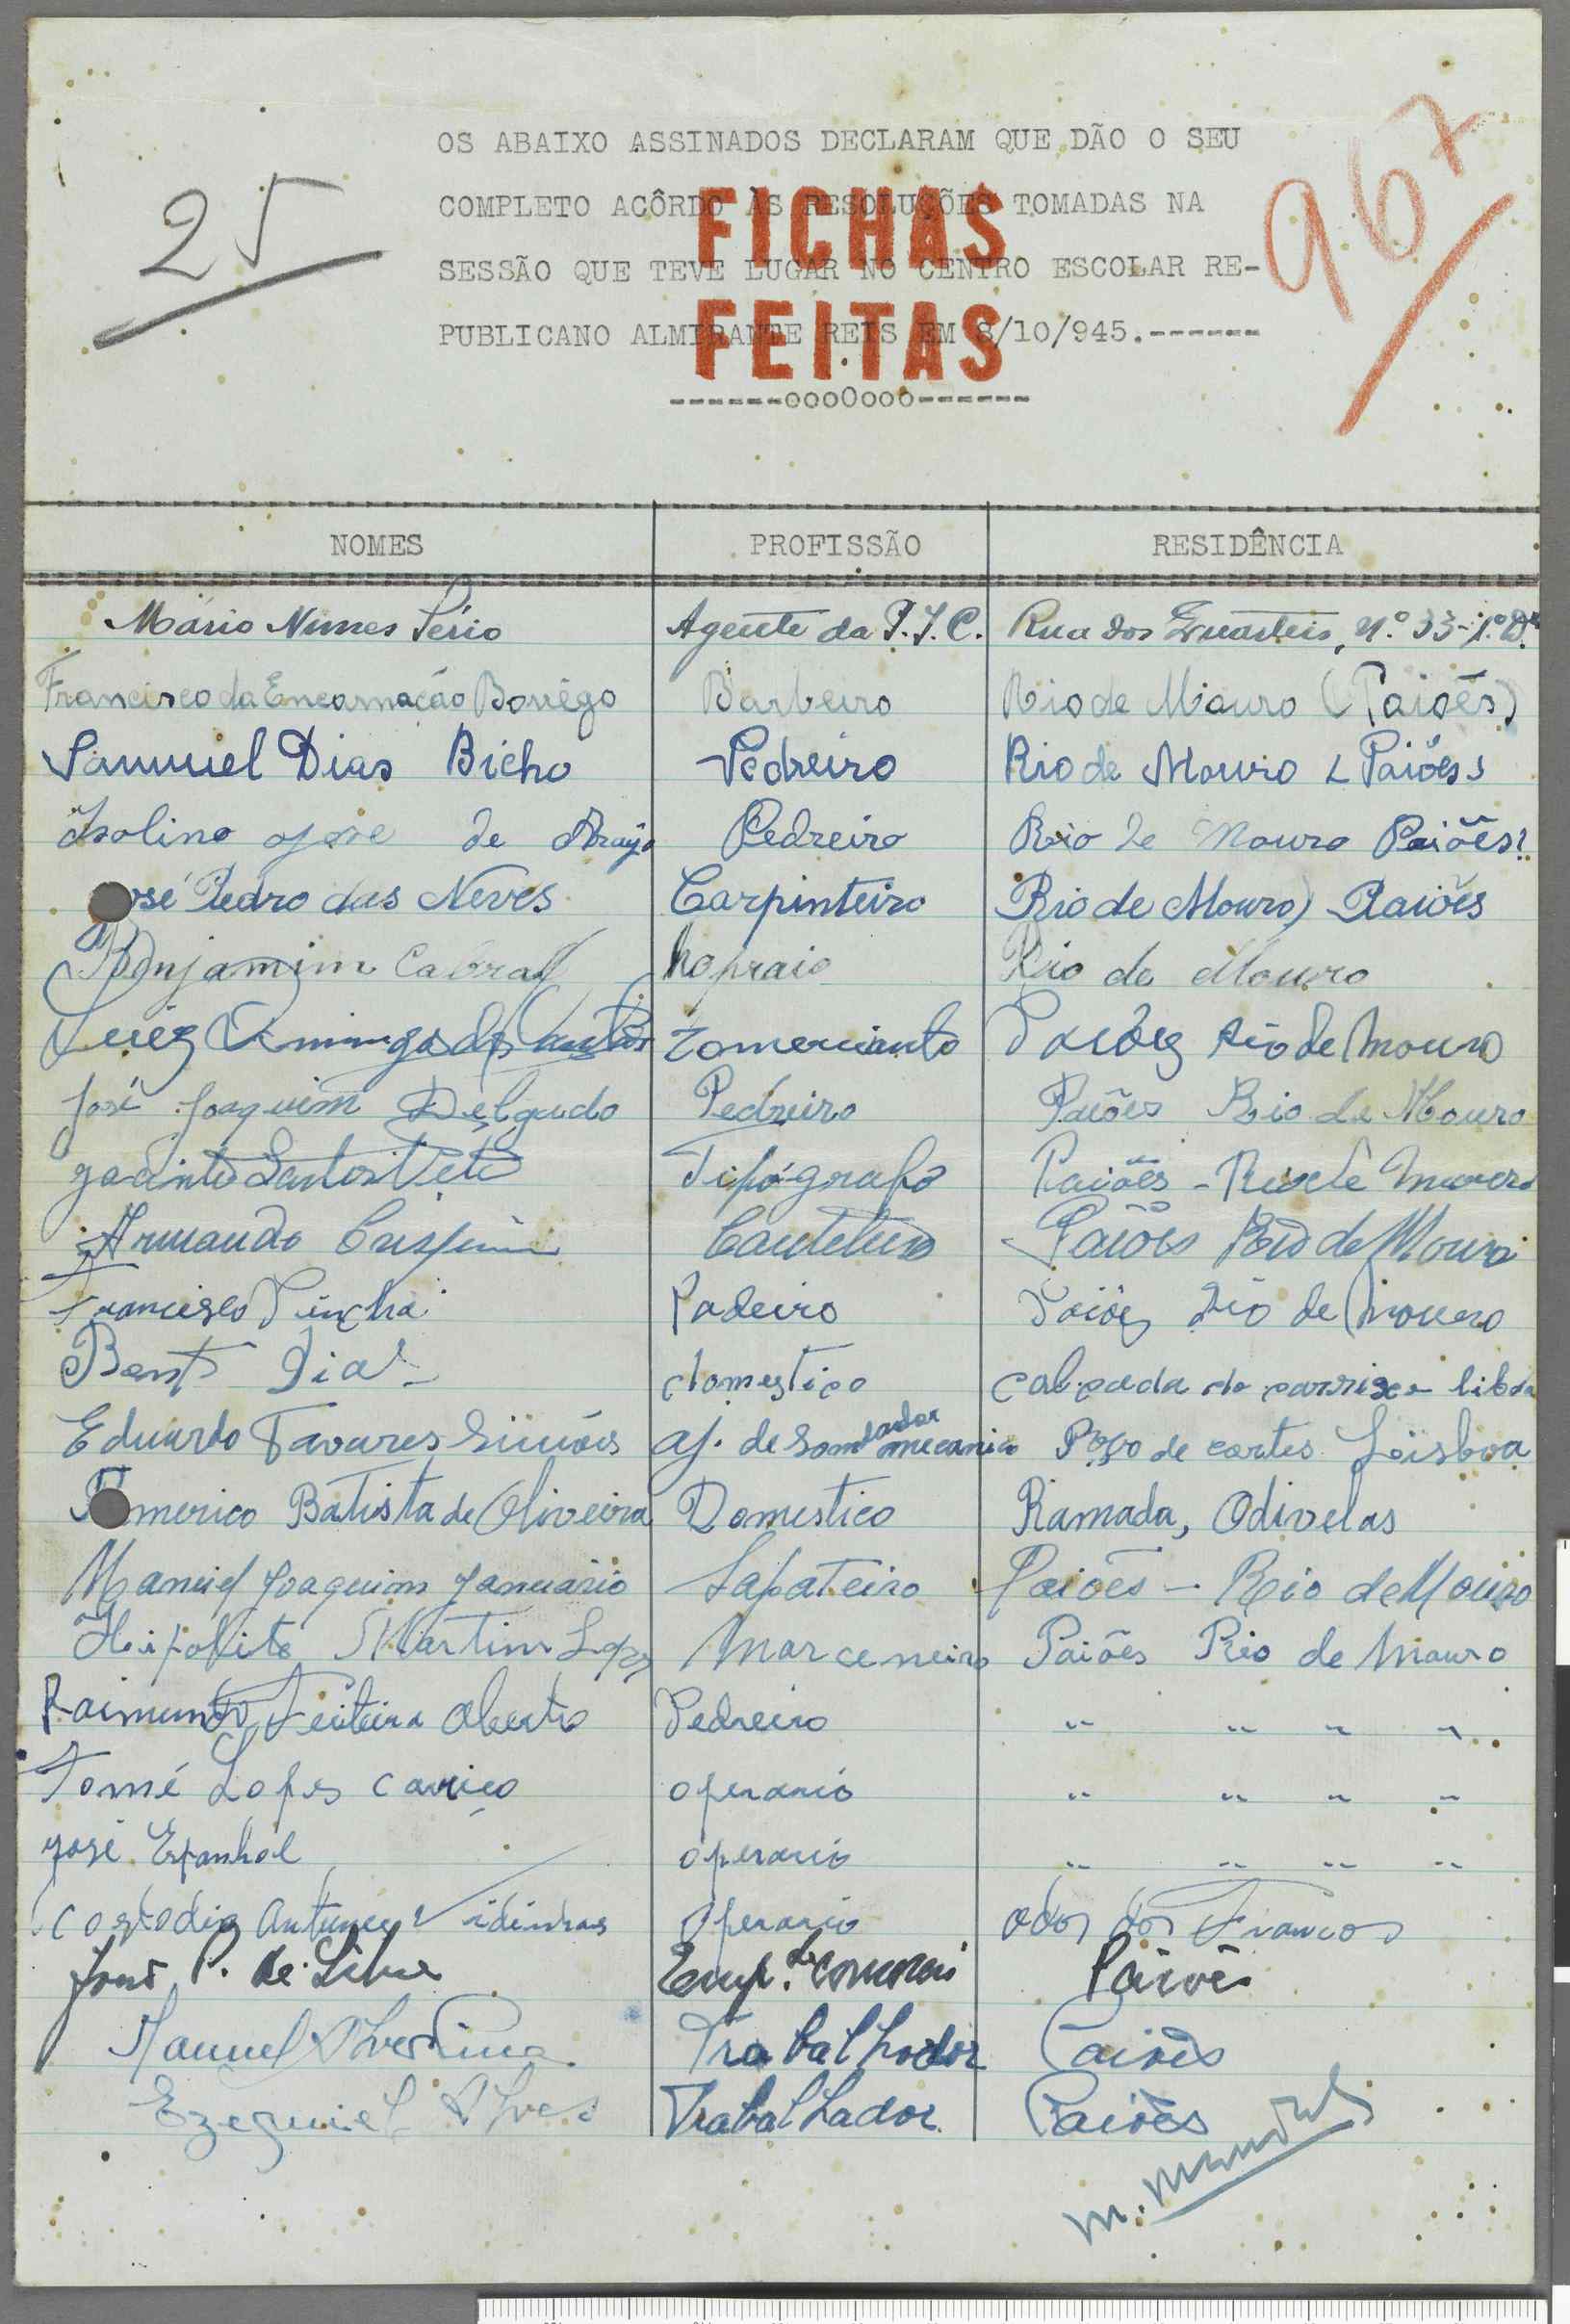 25
967
OS ABAIXO ASSINADOS DECLARAM QUE DÃO O SEU
COMPLETO ACÔRDO ÀS RESOLUÇÕES TOMADAS NA
SESSÃO QUE TEVE LUGAR NO CENTRO ESCOLAR RE-
PUBLICANO ALMIRANTE REIS EM 8/10/945.------
-------oooOooo-------
FICHAS
FEITAS
NOMES PROFISSÃO RESIDÊNCIA
Mário Nunes Sério Agente da P.I.C. Rua dos Quarteis, n.º 33-1.º D.
Francisco da Encarnação Borrêgo Barbeiro Rio de Mouro (Paiões)
Samuel Dias Bicho Pedreiro Rio de Mouro (Paiões)
Isolino José de Araujo Pedreiro Rio de Mouro Paiões
José Pedro das Neves Carpinteiro Rio de Mouro) Paiões
Benjamim Cabral Rio de Mouro
Luiz Domingos dos Santos Comerciante Paiões Rio de Mouro
José Joaquim Delgado Pedreiro Paiões Rio de Mouro
Jacinto Santos Tipógrafo Paiões - Rio de Mouro
Armando Crispim Cauteleiro Paiões Rio de Mouro
Francisco Padeiro Paiões Rio de Mouro
Bento Dias domestico calçada do
Eduardo Tavares Simões aj. de Soldador mecanico Poço de cortes Lisboa
Americo Batista de Oliveira Domestico Ramada, Odivelas
Manuel Joaquim Januário Sapateiro Paiões - Rio de Mouro
Hipolito Martins Lopes Marceneiro Paiões Rio de Mouro
Raimundo Alberto Pedreiro " " " "
Tomé Lopes Carriço operario " " " "
José Espanhol operario " " " "
Costodio Antunes Vidinhas Operario dos Francos
José P. de Lima Emp. de comercio Paiões
Manuel Trabalhador Paiões
Ezequiel Alves Trabalhador Paiões